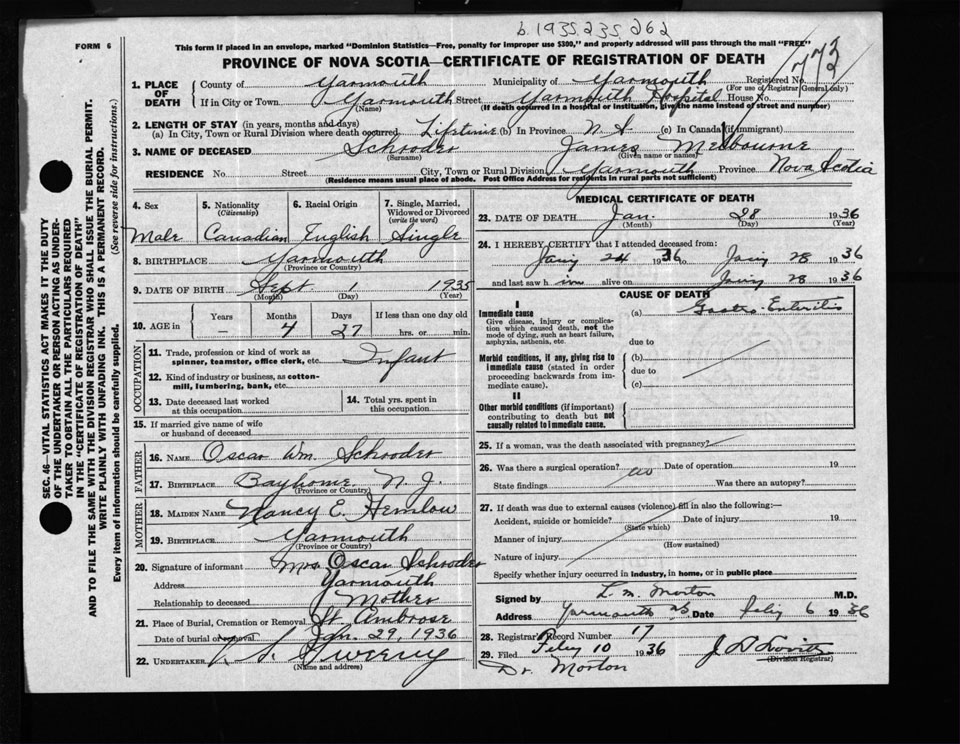 b. 1935.235.262
FORM 6
This form if placed in an envelope, marked "Dominion Statistics—Free, penalty for improper use $300," and properly addressed will pass through the mail "FREE"
PROVINCE OF NOVA SCOTIA—CERTIFICATE OF REGISTRATION OF DEATH
1. PLACE OF DEATH County of Yarmouth Municipality of Yarmouth Registered No. 773
(For use of Registrar General only)
If in City or Town Yarmouth Street Yarmouth Hospital House No.
(Name) (If death occurred in a hospital or institution, give the name instead of street and number)
2. LENGTH OF STAY (in years, months and days)
(a) In City, Town or Rural Division where death occurred Lifetime (b) In Province N.S. (c) In Canada (if immigrant)
3. NAME OF DECEASED Schroder James Melbourne
(Surname) (Given name or names)
RESIDENCE No. Street City, Town or Rural Division Yarmouth Province Nova Scotia
(Residence means usual place of abode. Post Office Address for residents in rural parts not sufficient)
SEC. 46—VITAL STATISTICS ACT MAKES IT THE DUTY
OF THE UNDERTAKER OR PERSON ACTING AS UNDER-
TAKER TO OBTAIN ALL THE PARTICULARS REQUIRED
IN THE "CERTIFICATE OF REGISTRATION OF DEATH"
AND TO FILE THE SAME WITH THE DIVISION REGISTRAR WHO SHALL ISSUE THE BURIAL PERMIT.
WRITE PLAINLY WITH UNFADING INK. THIS IS A PERMANENT RECORD.
Every item of information should be carefully supplied. (See reverse side for instructions.)
4. Sex 5. Nationality (Citizenship) 6. Racial Origin 7. Single, Married, Widowed or Divorced (write the word)
Male Canadian English Single
8. BIRTHPLACE Yarmouth
(Province or Country)
9. DATE OF BIRTH Sept. 1 1935
(Month) (Day) (Year)
10. AGE in Years Months Days If less than one day old
— 4 27 hrs. or min.
OCCUPATION
11. Trade, profession or kind of work as spinner, teamster, office clerk, etc. Infant
12. Kind of industry or business, as cotton-mill, lumbering, bank, etc.
13. Date deceased last worked at this occupation 14. Total yrs. spent in this occupation
15. If married give name of wife or husband of deceased
FATHER
16. NAME Oscar Wm. Schroder
17. BIRTHPLACE Bayhome N. J.
(Province or Country)
MOTHER
18. MAIDEN NAME Nancy E. Hemlow
19. BIRTHPLACE Yarmouth
(Province or Country)
20. Signature of informant Mrs Oscar Schroder
Address Yarmouth
Relationship to deceased Mother
21. Place of Burial, Cremation or Removal St. Ambrose
Date of burial or removal Jan. 29, 1936
22. UNDERTAKER Sweeny
(Name and address)
MEDICAL CERTIFICATE OF DEATH
23. DATE OF DEATH Jan. 28 1936
(Month) (Day) (Year)
24. I HEREBY CERTIFY that I attended deceased from:
Jany 24 1936 to Jany 28 1936
and last saw h im alive on Jany 28 1936
CAUSE OF DEATH
I
Immediate cause
Give disease, injury or complication which caused death, not the mode of dying, such as heart failure, asphyxia, asthenia, etc.
(a) Gastro Enteritis
due to
Morbid conditions, if any, giving rise to immediate cause (stated in order proceeding backwards from immediate cause).
(b)
due to
(c)
II
Other morbid conditions (if important) contributing to death but not causally related to immediate cause.
25. If a woman, was the death associated with pregnancy?
26. Was there a surgical operation? no Date of operation 19
State findings Was there an autopsy?
27. If death was due to external causes (violence) fill in also the following:—
Accident, suicide or homicide? Date of injury 19
(State which)
Manner of injury
(How sustained)
Nature of injury
Specify whether injury occurred in industry, in home, or in public place
Signed by L. M. Morton M.D.
Address Yarmouth NS Date Feby 6 1936
28. Registrar's Record Number 17
29. Filed Feby 10 1936
(Division Registrar)
Dr. Morton